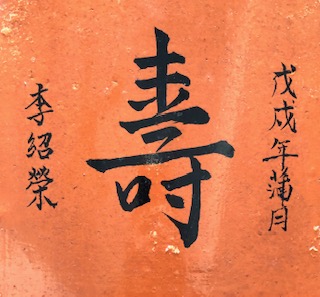 戊戌年蒲月
壽
李紹榮